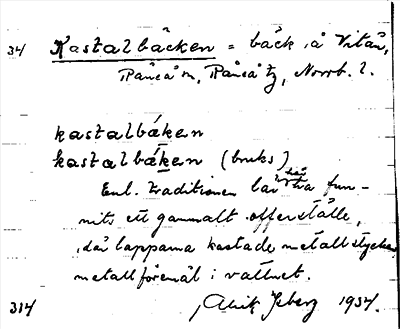 34 Kastalbäcken = bäck, å Vitån,
Råneå sn, Råneå tg, Norrb. l.
kastalbäken
kastalbäken (bruks)
Enl. traditionen lär här ha fun-
nits ett gammalt offerställe,
där lapparna kastade metallstycken,
metallföremål i vattnet.
314 1934.